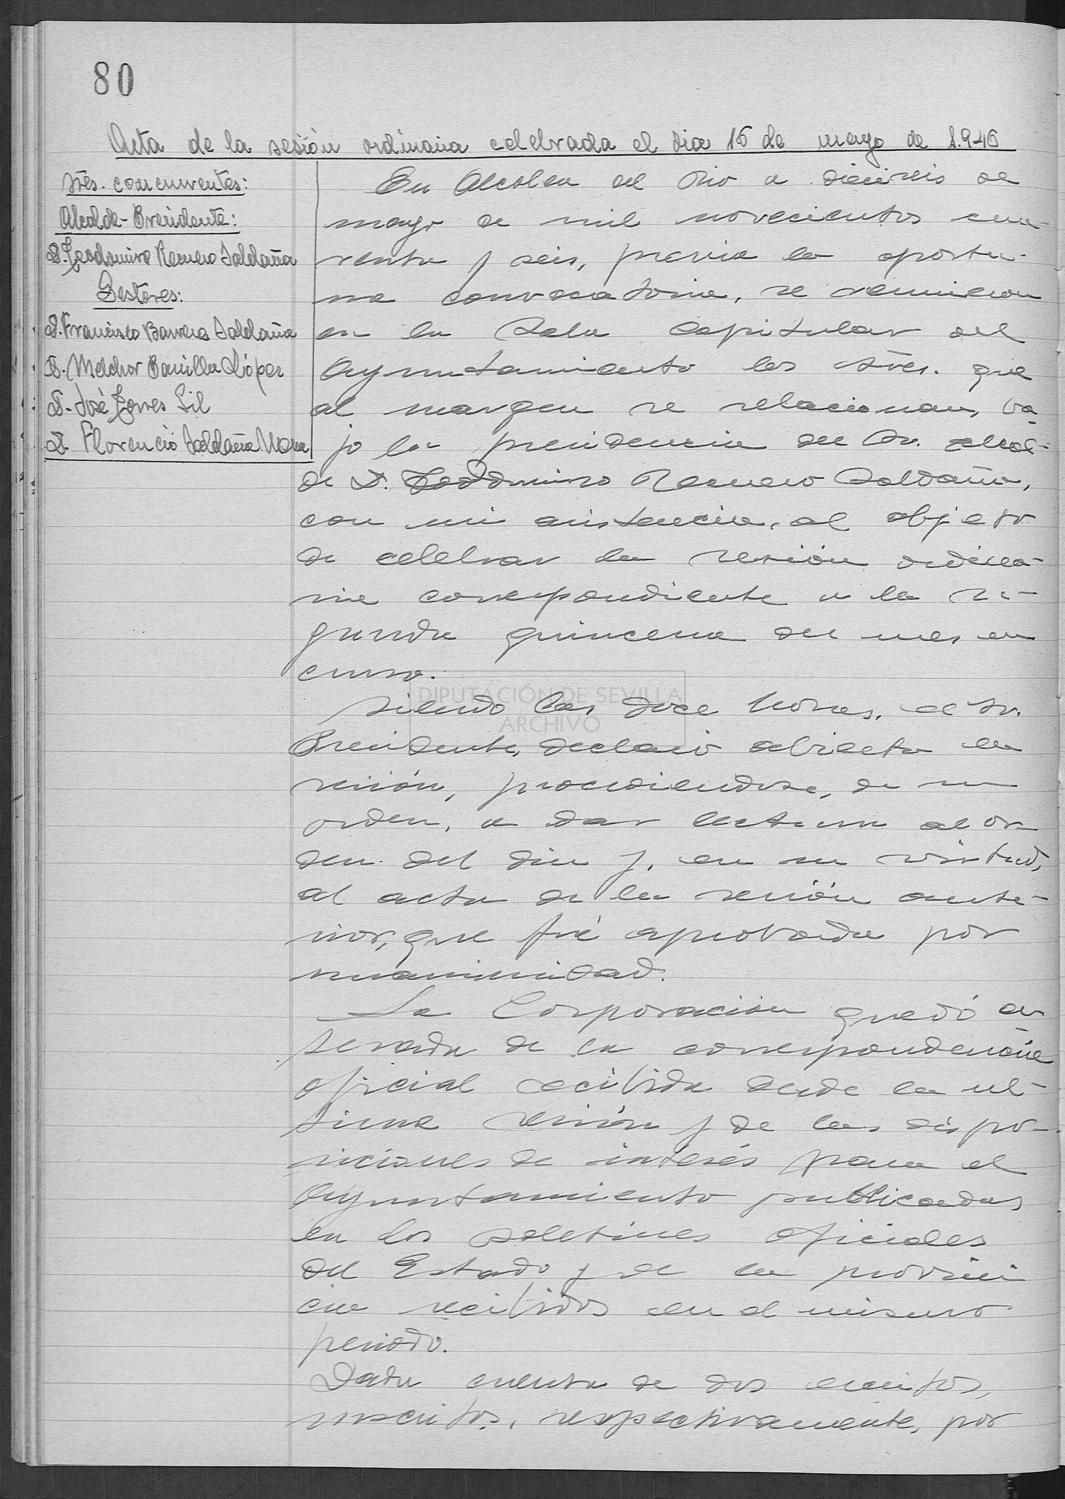 80
Acta de la sesión ordinaria celebrada el dia 16 de mayo de 1.946
Sres. concurrentes:
Alcalde-Presidente:
D. Teodomiro Romero Saldaña
Gestores:
D. Francisco Barrera Saldaña
D. Melchor Bonilla López
D. José Torres Gil
D. Florencio Saldaña
En Alcolea del Rio a dieciseis de
mayo de mil novecientos cua-
renta y seis, previa la oportu-
na convocatoria, se reunieron
en la Sala Capitular del
Ayuntamiento los Sres. que
al margen se relacionan, ba
jo la presidencia del Sr. Alcal-
de D. Teodomiro Romero Saldaña,
con mi asistencia, al objeto
de celebrar la sesión ordina-
ria correspondiente a la se-
gunda quincena del mes en
curso.
DIPUTACIÓN DE SEVILLA
ARCHIVO
Siendo las doce horas, el Sr.
Presidente, declaró abierta la
sesión, procediendose, de su
orden, a dar lectura al or
den del dia y, en su virtud,
al acta de la sesión ante-
rior, que fué aprobada por
unanimidad.
La Corporación quedó en
terada de la correspondencia
oficial recibida desde la ul-
tima sesión y de las dispo-
siciones de interés para el
Ayuntamiento publicadas
en los Boletines oficiales
del Estado y de la provin
cia recibidos en el mismo
periodo.
Dada cuenta de dos escritos,
suscritos, respectivamente, por